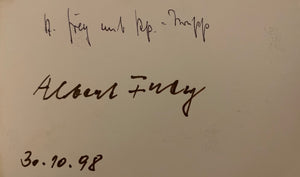 A. Frey mit Kp.-Trupp
Albert Frey
30.10.98